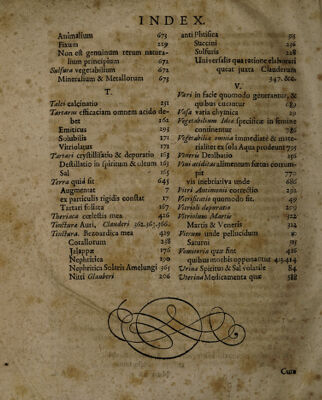 INDEX.
Animalium 673
Fixum 219
Non est genuinum rerum natura-
lium principium 672
Sulfura vegetabilium 672
Mineralium & Metallorum 673
T.
Talci calcinatio 251
Tartarus efficaciam omnem acido de-
bet 162
Emeticus 295
Solubilis 171
Vitriolatus 172
Tartari crystallisatio & depuratio 163
Destillatio in spiritum & oleum 163
Sal 165
Terra quid sit 645
Augmentat 7
ex particulis rigidis constat 17
Tartari foliata 167
Theriaca cœlestis mea 426
Tinctura Auri, Clauderi 362.365.366.
Tinctura Bezoardica mea 429
Corallorum 238
Jalappæ 176
Nephritica 190
Nephritica Solaris Amelungi 365
Nitri Glauberi 206
anti Phtisica
Succini 226
Sulfuris 228
Universalis qua ratione elaborari
queat juxta Clauderum
347. &c.
V.
Vari in facie quomodo generantur, &
quibus curentur 689
Vasa varia chymica 29
Vegetabilium Idea specificæ in semine
continentur 786
Vegetabilia omnia immediate & mate-
rialiter ex sola Aqua prodeunt 795
Veneris Destillatio 256
Vini aciditas alimentum fœtus corrum-
pit 770
vis inebriativa unde 686
Vitri Antimonii correctio 298
Vitrificatio quomodo fit. 49
Vitrioli depuratio 209
Vitriolum Martis 322
Martis & Veneris 324
Vitrum unde pellucidum
Saturni 315
Vomitoria quæ sint 416
quibus morbis opponantur 413.414
Urina Spiritus & Sal volatile 84
Uterina Medicamenta quæ 588
Cura